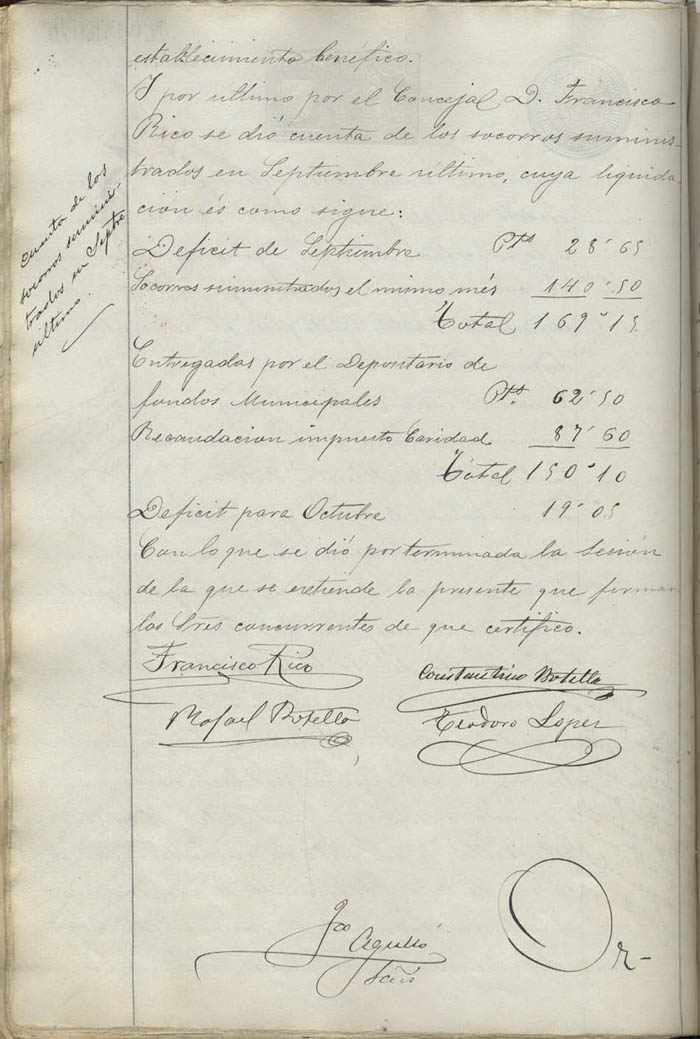 establecimiento benéfico.
Y por ultimo por el Concejal D. Francisco
Rico se dió cuenta de los socorros suminis-
trados en Septiembre último, cuya liquida-
ción és como sigue:
Cuenta de los
socorros suminis-
trados en Septbre
ultimo.
Deficit de Septiembre Pts 28'65
Socorros suministrados el mismo més 140'50
Total 169'15
Entregadas por el Depositario de
fondos Municipales Pts. 62'50
Recaudacion impuesto Caridad 87'60
Total 150'10
Deficit para Octubre 19'05
Con lo que se dió por terminada la sesión
de la que se extiende la presente que firman
los Sres concurrentes de que certifico.
Francisco Rico Constantino Botella
Rafael Botella Teodoro Lopez
Agulló
Or-